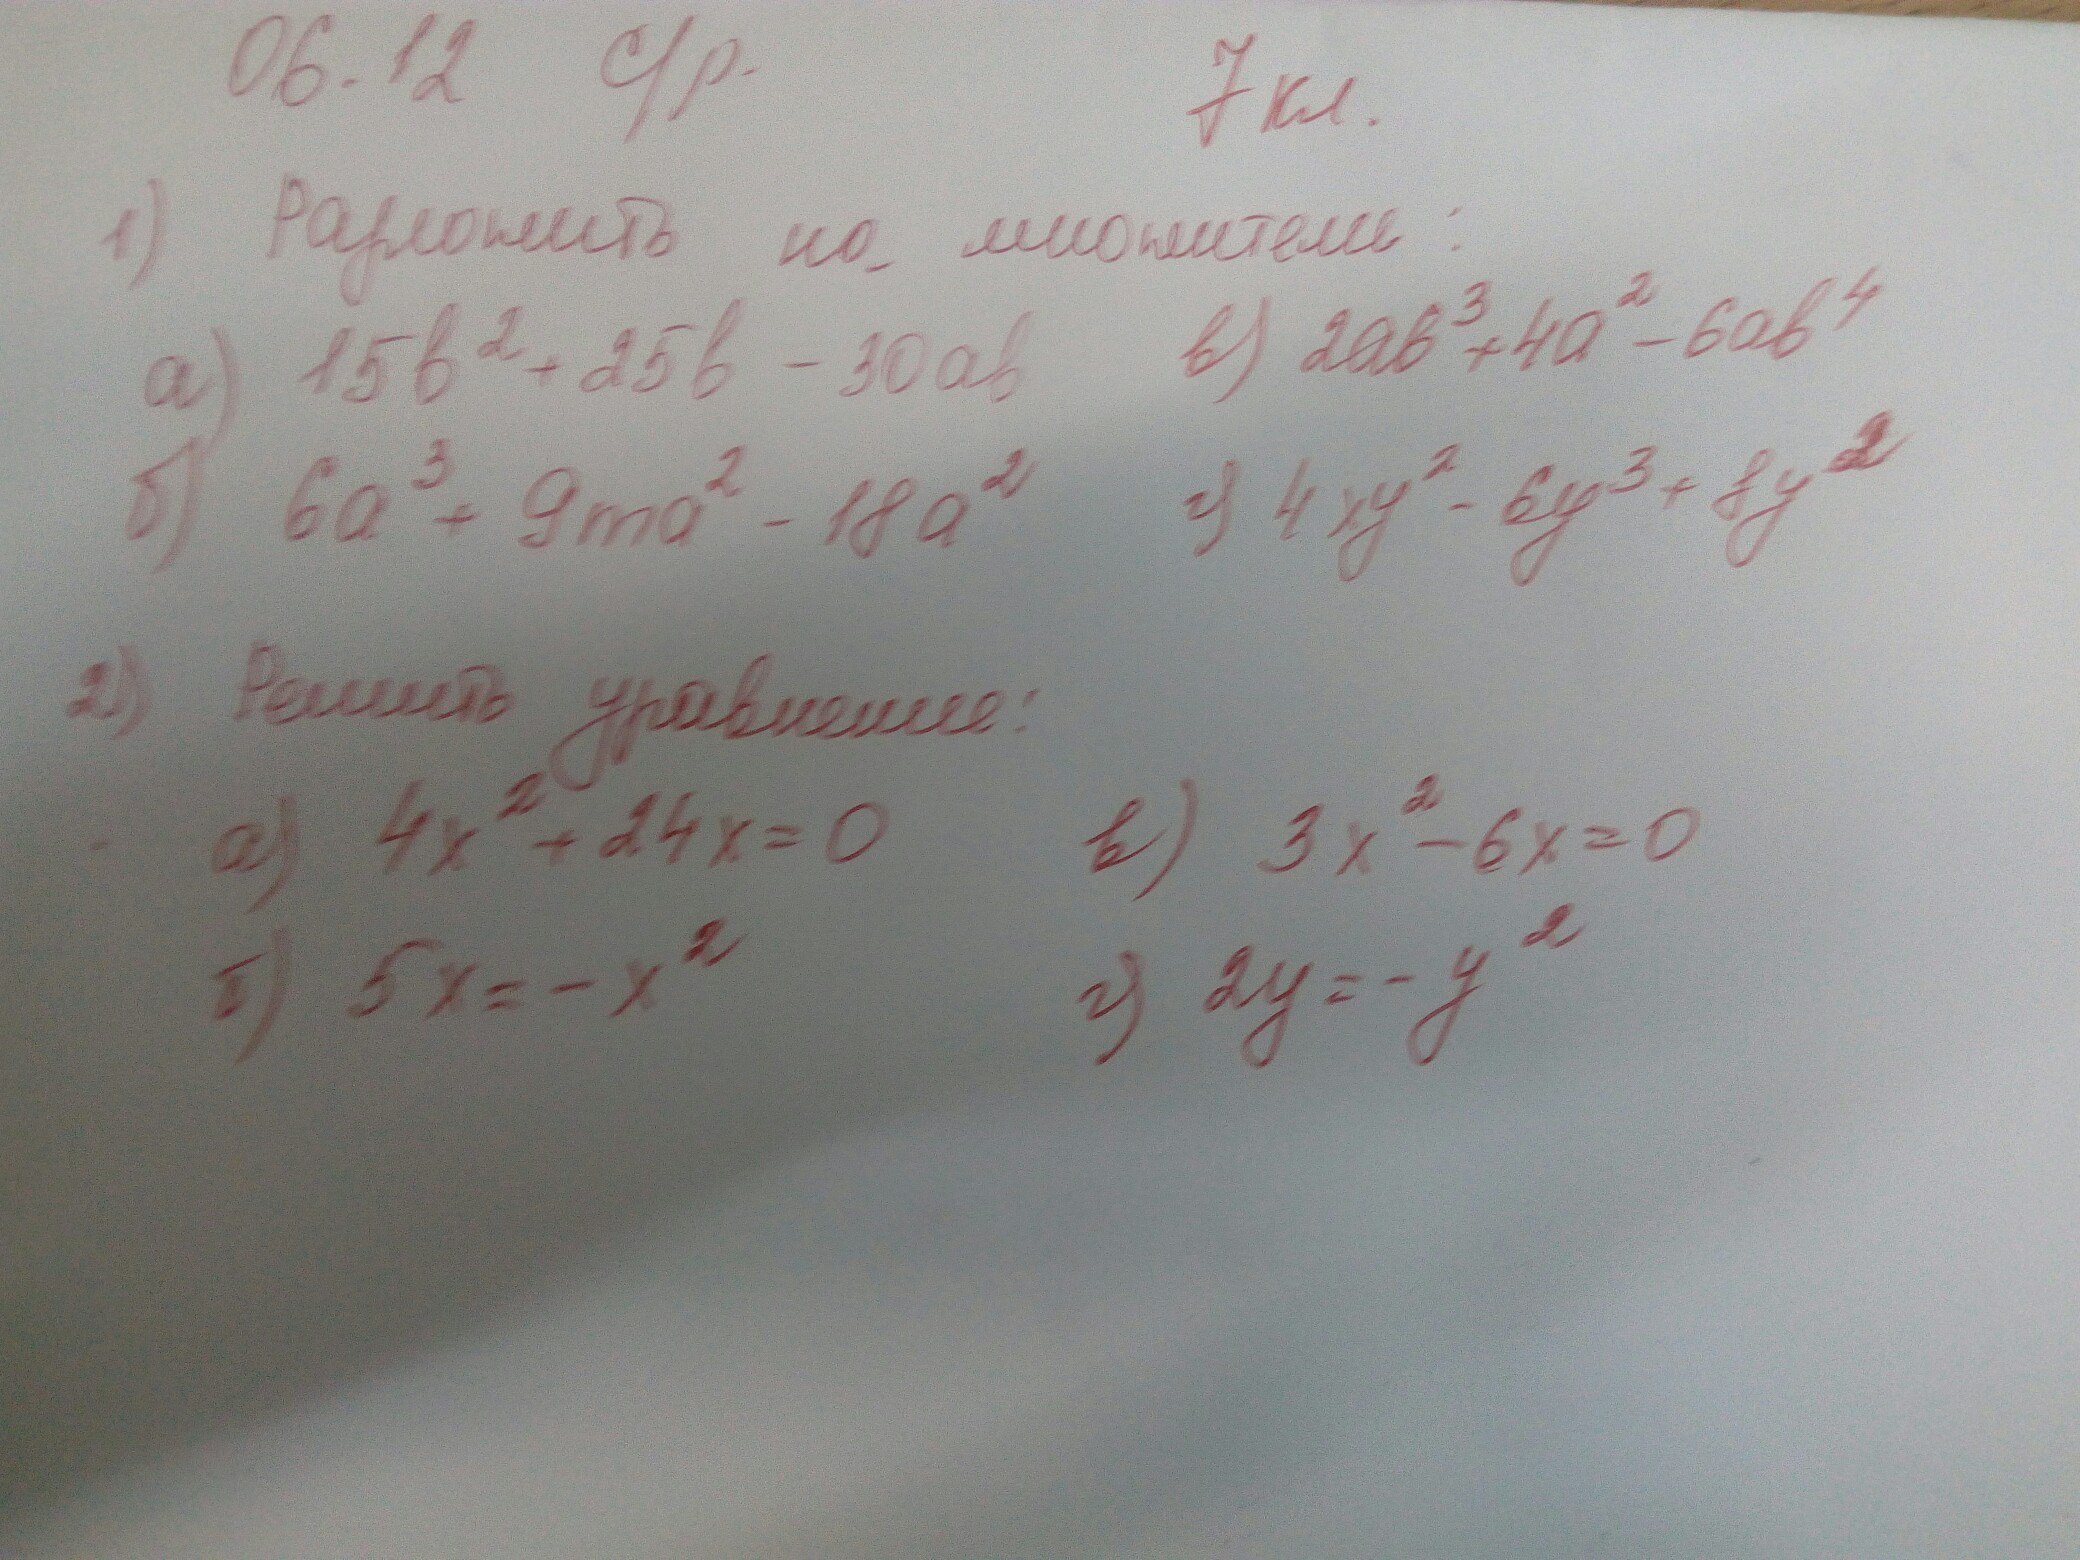 06.12 С/р. 7 кл.
1) Разложить на множители:
а) 15b² + 25b - 30ab в) 2ab³ + 4a² - 6ab⁴
б) 6a³ + 9ma² - 18a² г) 4xy² - 6y³ + 8y²
2) Решить уравнение:
а) 4x² + 24x = 0 в) 3x² - 6x = 0
б) 5x = -x² г) 2y = -y²